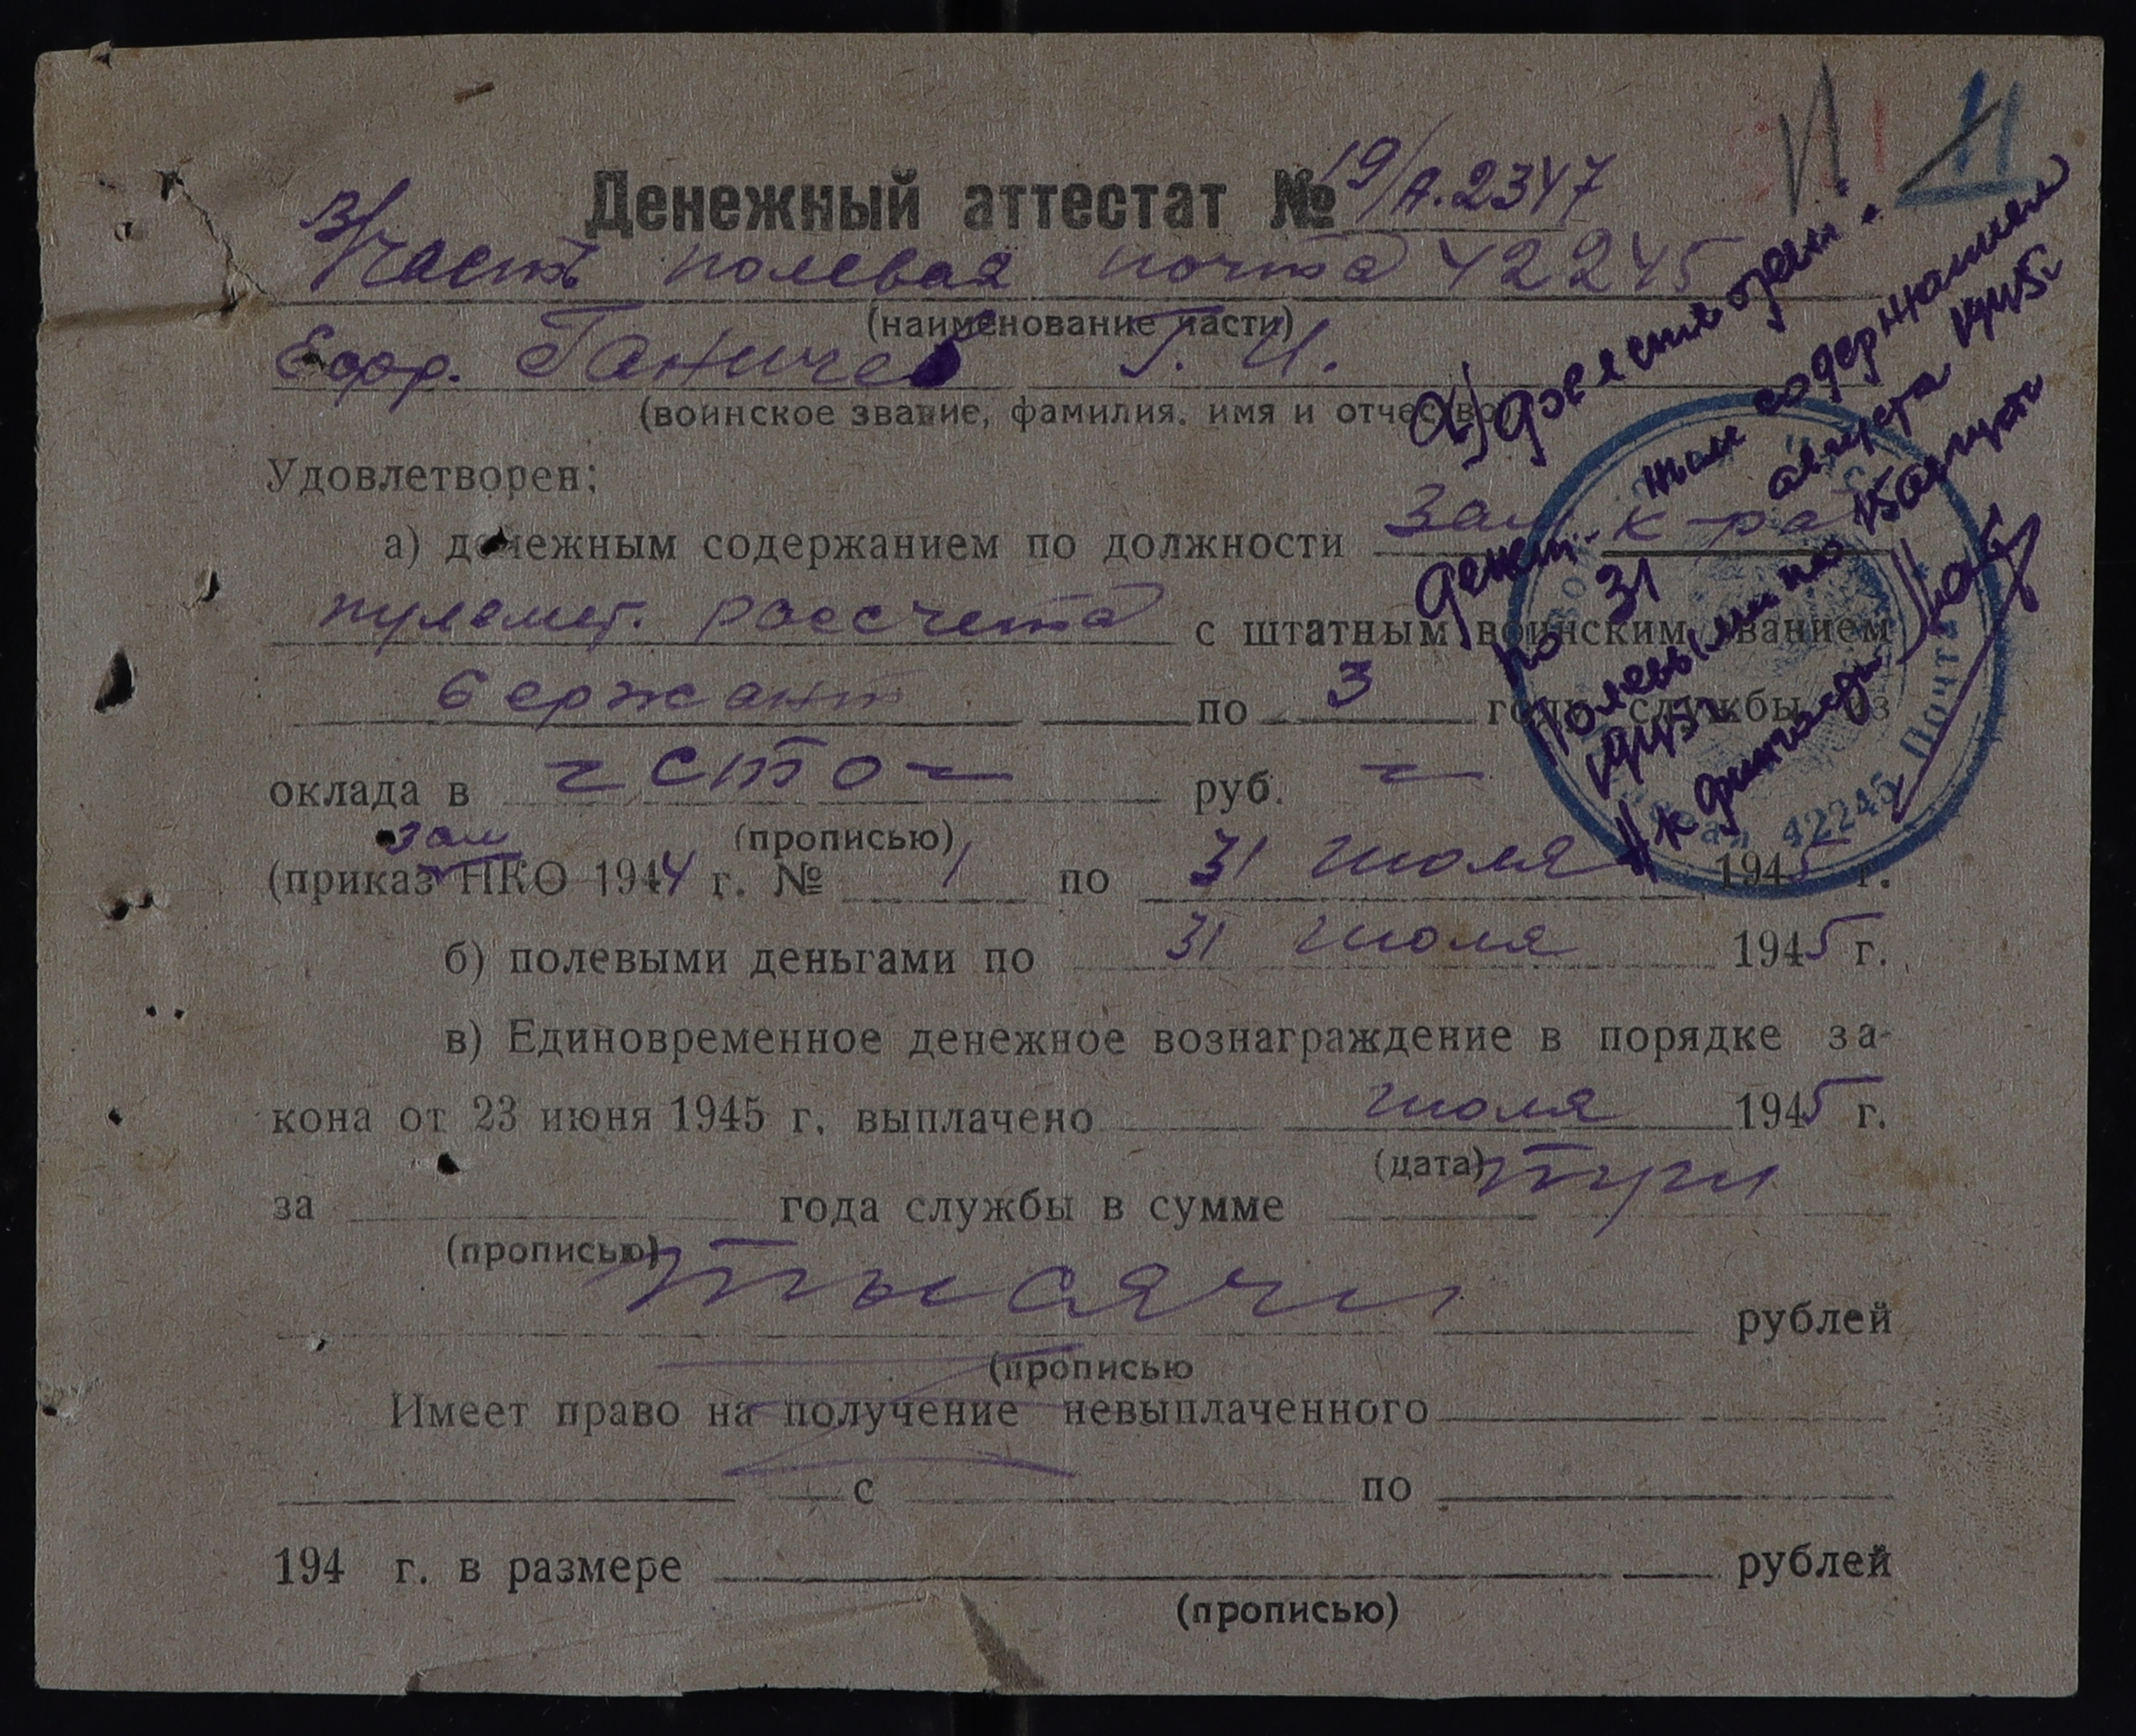 Денежный аттестат № 19/А.2347
В/Часть полевая почта 42245
(наименование части)
Ефр. Ганичев Г. И.
(воинское звание, фамилия, имя и отчество)
Удовлетворен:
а) денежным содержанием по должности зам. к-ра
пулемет. рассчета с штатным воинским званием
сержант по 3 году службы из
оклада в сто руб. —
(прописью)
зам
(приказ НКО 1944 г. № 1 по 31 июля 1945 г.
б) полевыми деньгами по 31 июля 1945 г.
в) Единовременное денежное вознаграждение в порядке за-
кона от 23 июня 1945 г. выплачено июля 1945 г.
(дата)
за года службы в сумме три
(прописью)
тысячи рублей
(прописью
Имеет право на получение невыплаченного
с по
194 г. в размере рублей
(прописью)
а)
денеж. ным содержанием
по 31 августа 1945г.
полевыми по 15 августа
1945г.
Почта
42245
11